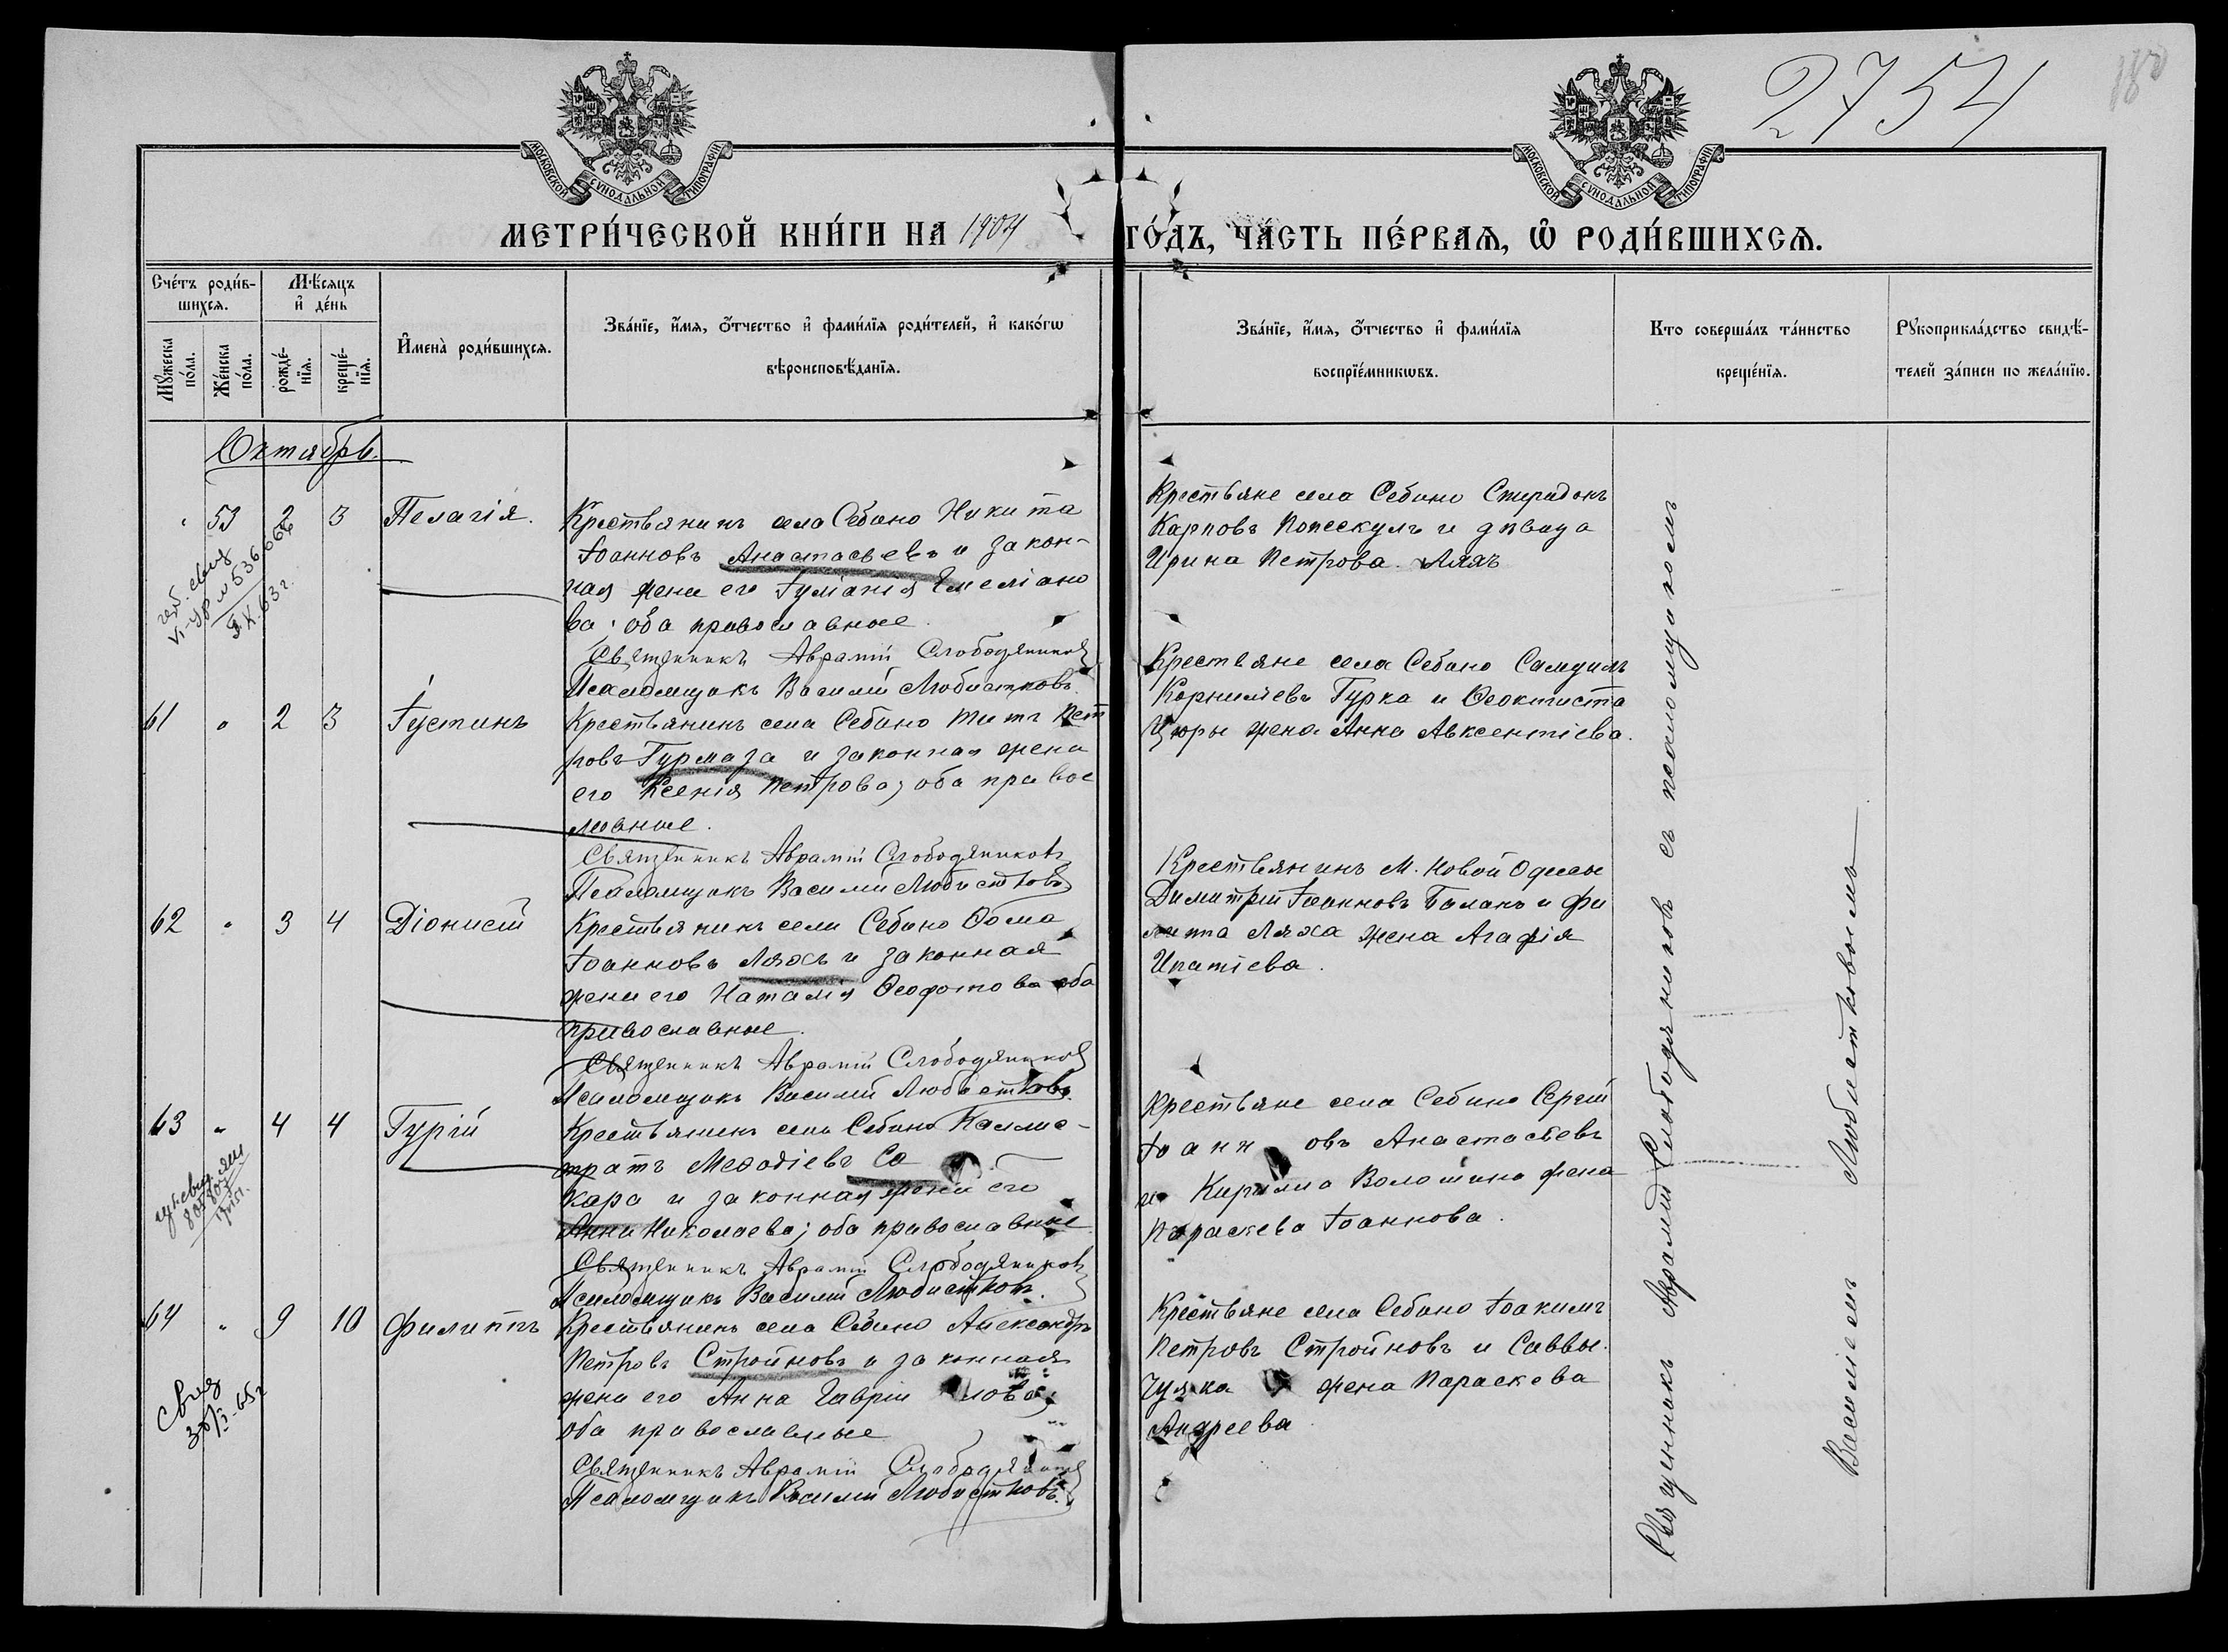 2754
180
МОСКОВСКОЙ СУНОДАЛЬНОЙ ТИПОГРАФІИ
МОСКОВСКОЙ СУНОДАЛЬНОЙ ТИПОГРАФІИ
МЕТРИ́ЧЕСКОЙ КНИ́ГИ НА 1904 ГО́ДЪ, ЧА́СТЬ ПЕ́РВАѦ, Ѽ РОДИ́ВШИХСѦ.
Сче́тъ роди́в-
шихсѧ.
Мꙋ́жеска
по́ла.
Же́нска
по́ла.
Мѣ́сѧцъ
и҆ де́нь
рожде́-
нїѧ.
креще́-
нїѧ.
И҆мена̀ роди́вшихсѧ.
Зва́нїе, и҆́мѧ, ѻ҆́тчество и҆ фами́лїѧ роди́телей, и҆ како́гѡ
вѣроисповѣ́данїѧ.
Зва́нїе, и҆́мѧ, ѻ҆́тчество и҆ фами́лїѧ
воспрїе́мникѡвъ.
Кто соверша́лъ та́инство
креще́нїѧ.
Рꙋкоприкла́дство свидѣ́-
телей за́писи по жела́нїю.
Октябрь.
53 2 3 Пелагія.
Крестьянинъ села Себино Никита
Іоанновъ Анастасьевъ и закон-
ная жена его Іуліанія Емеліано
ва; оба православные.
Священникъ Аврамій Слободяниковъ
Псаломщикъ Василій Любистковъ.
Крестьяне села Себино Спиридонъ
Карповъ Попескулъ и дѣвица
Ирина Петрова Ляхъ
61 " 2 3 Іустинъ
Крестьянинъ села Себино Титъ Пет
ровъ Гурмаза и законная жена
его Ксенія Петрова; оба правос
лавные.
Священникъ Аврамій Слободяниковъ
Псаломщикъ Василій Любистковъ
Крестьяне села Себино Самуилъ
Корниліевъ Гурка и Ѳеоктиста
Цюры жена Анна Авксентіева.
62 " 3 4 Діонисій
Крестьянинъ села Себино Ѳома
Іоанновъ Ляхъ и законная
жена его Наталія Ѳеофотова оба
православные.
Священникъ Аврамій Слободяниковъ
Псаломщикъ Василій Любистковъ.
Крестьянинъ М. Новой Одессы
Димитрій Іоанновъ Баланъ и Фи
липпа Ляха жена Агафія
Ипатіева.
63 " 4 4 Гурій
Крестьянинъ села Себино Каллис-
тратъ Меѳодіевъ Со
кара и законная жена его
Анна Николаева; оба православные
Священникъ Аврамій Слободяниковъ
Псаломщикъ Василій Любистковъ.
Крестьяне села Себино Сергій
Іоанновъ Анастасьевъ
и Кирилла Волошина жена
Параскева Іоаннова.
64 " 9 10 Филиппъ
Крестьянинъ села Себино Александръ
Петровъ Стройновъ и законная
жена его Анна Гавріилова;
оба православные
Священникъ Аврамій Слободяниковъ
Псаломщикъ Василій Любистковъ.
Крестьяне села Себино Іоакимъ
Петровъ Стройновъ и Саввы
Чуяка жена Параскева
Андреева
Священникъ Аврамій Слободяниковъ съ псаломщикомъ
Василіемъ Любистковымъ